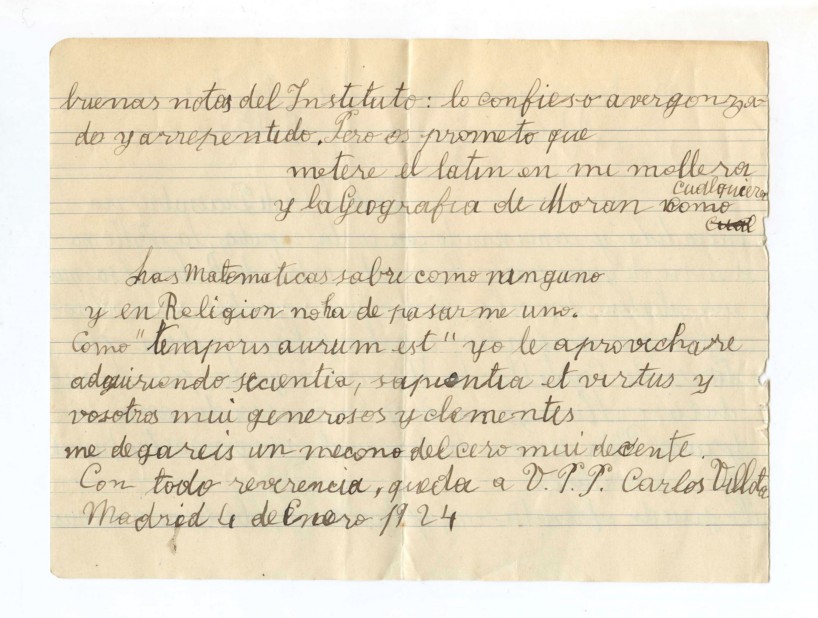 buenas notas del Instituto: lo confieso avergonza-
do y arrepentido. Pero os prometo que
metere el latin en mi mollera
y la Geografia de Moran como cualquiera
cual
Las Matematicas sabre como ninguno
y en Religion no ha de pasarme uno.
Como "temporis aurum est" yo le aprovechare
adquiriendo scientia, sapientia et virtus y
vosotros mui generosos y clementes
me degareis un mecono del cero mui decente.
Con todo reverencia, queda a V.P.P. Carlos Villota
Madrid 4 de Enero 1924